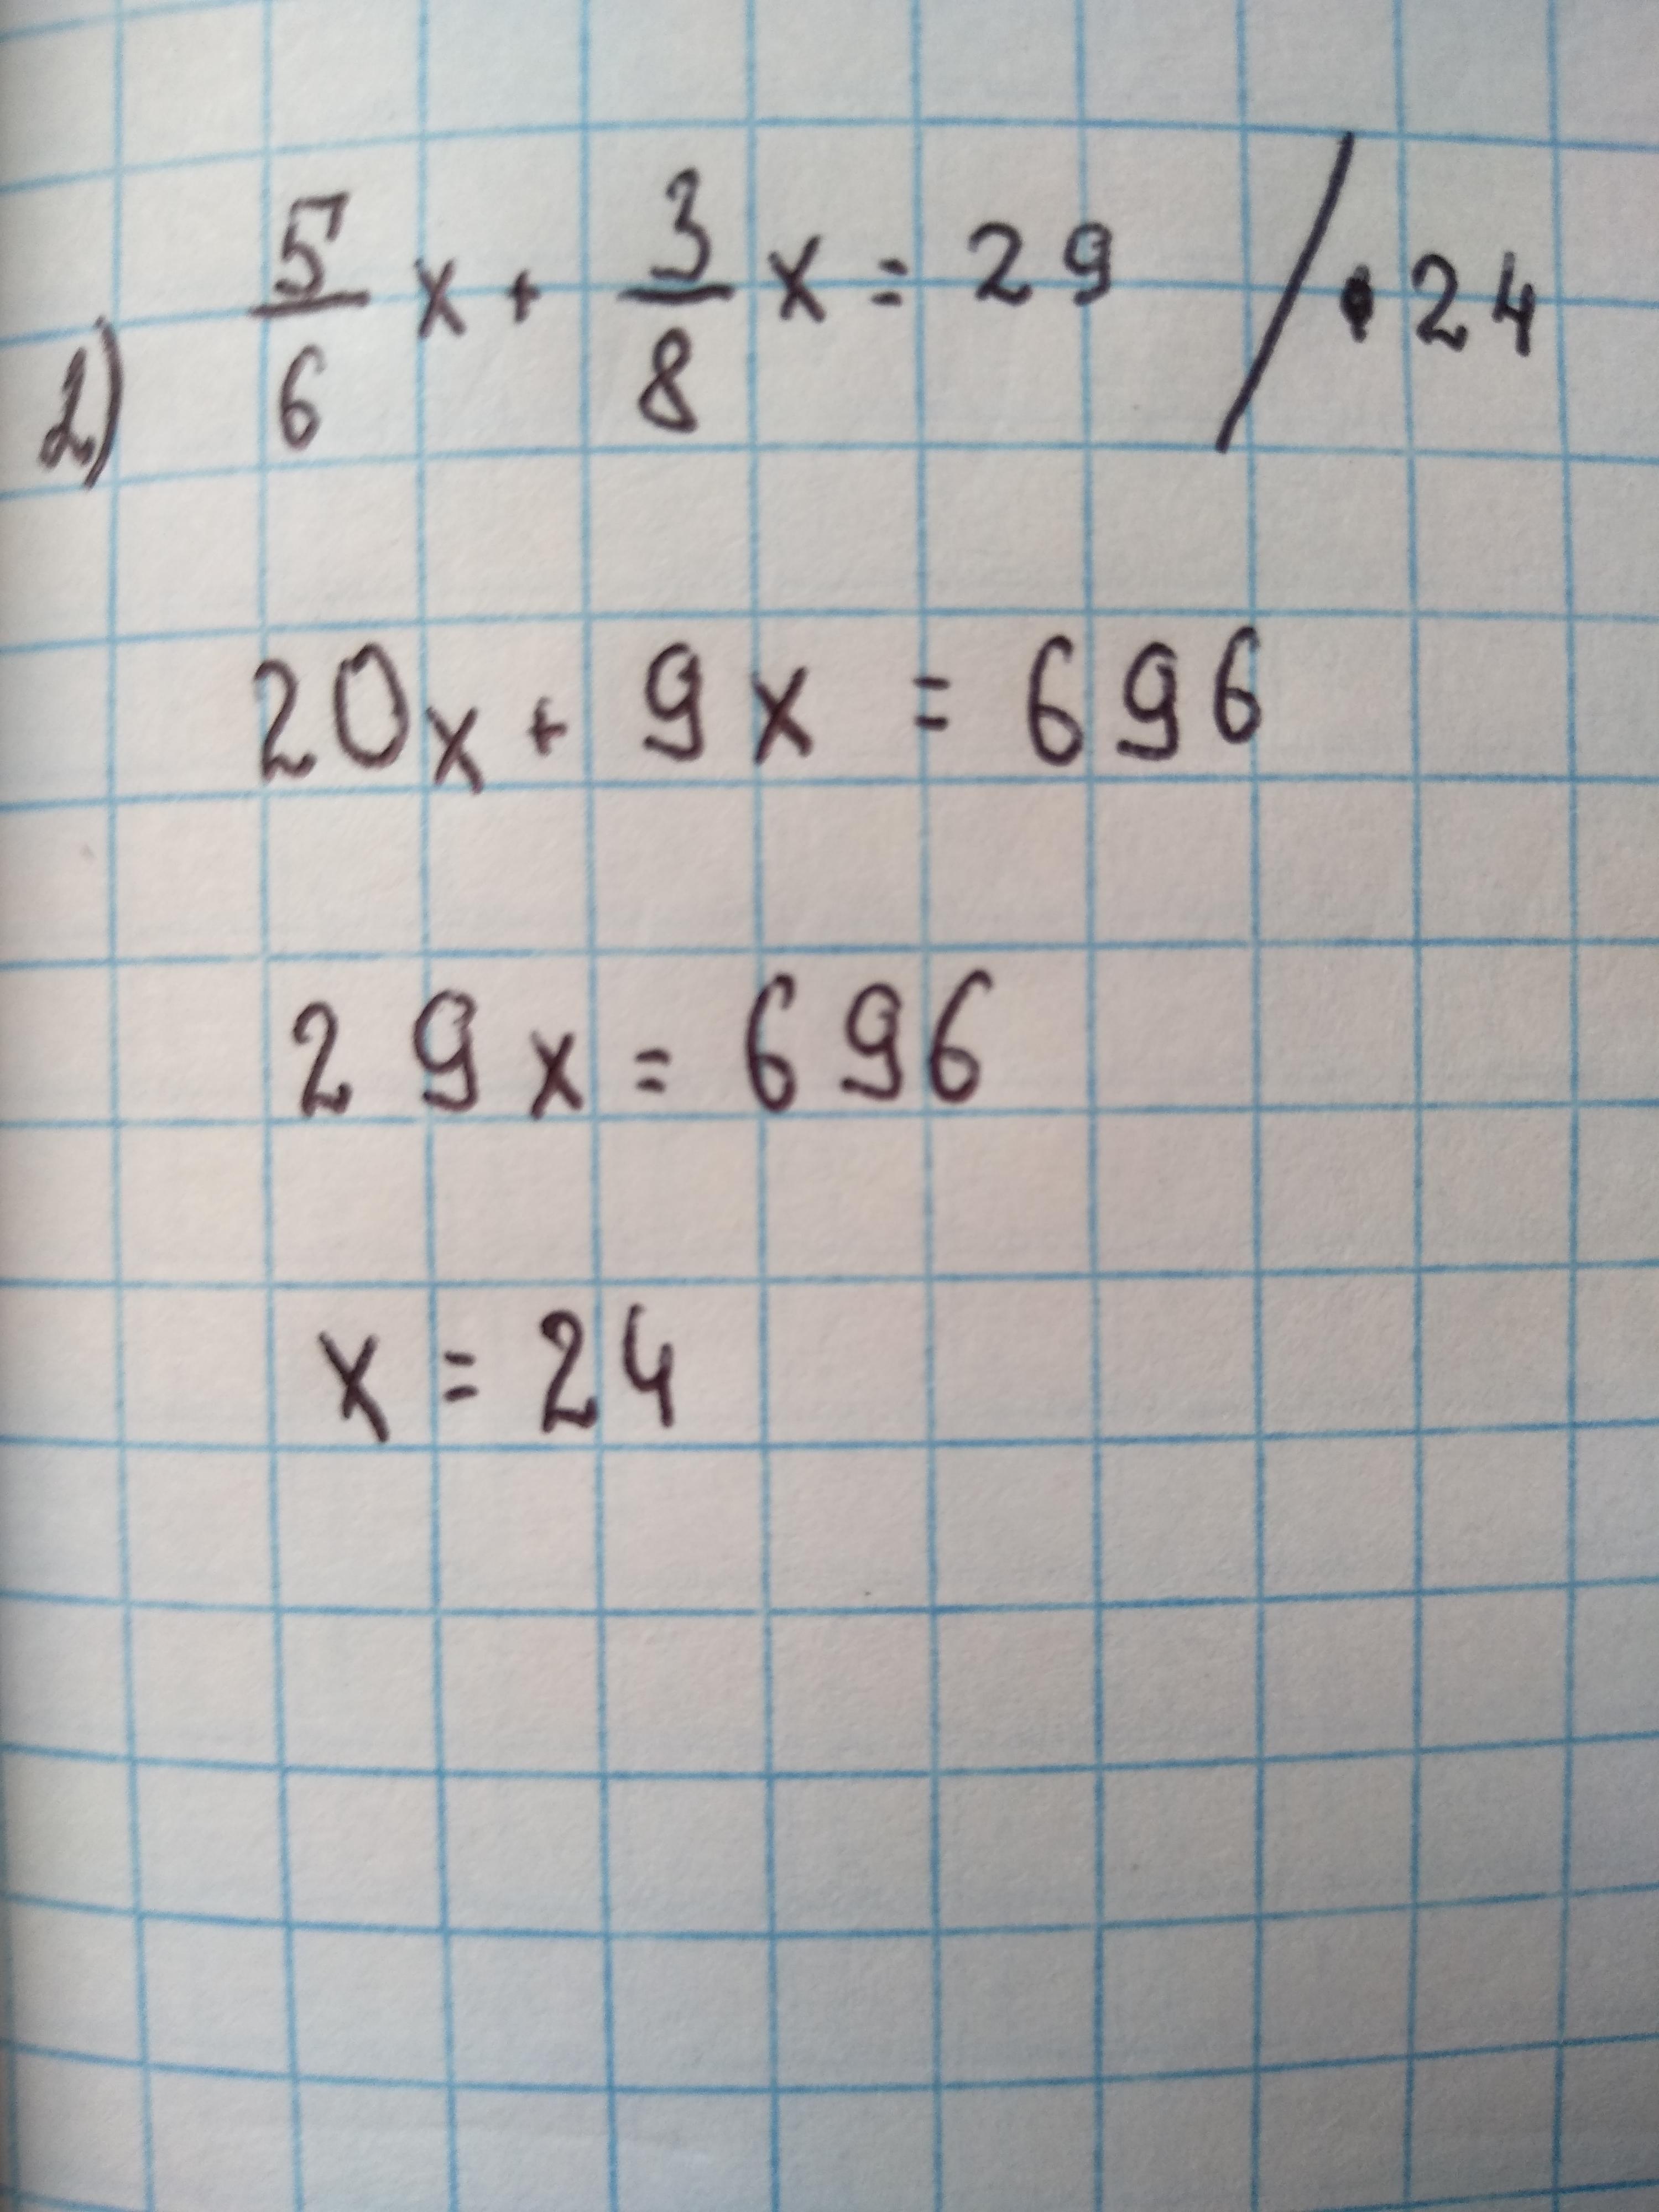 1) 5/6 x + 3/8 x = 29 / · 24
20x + 9x = 696
29x = 696
x = 24